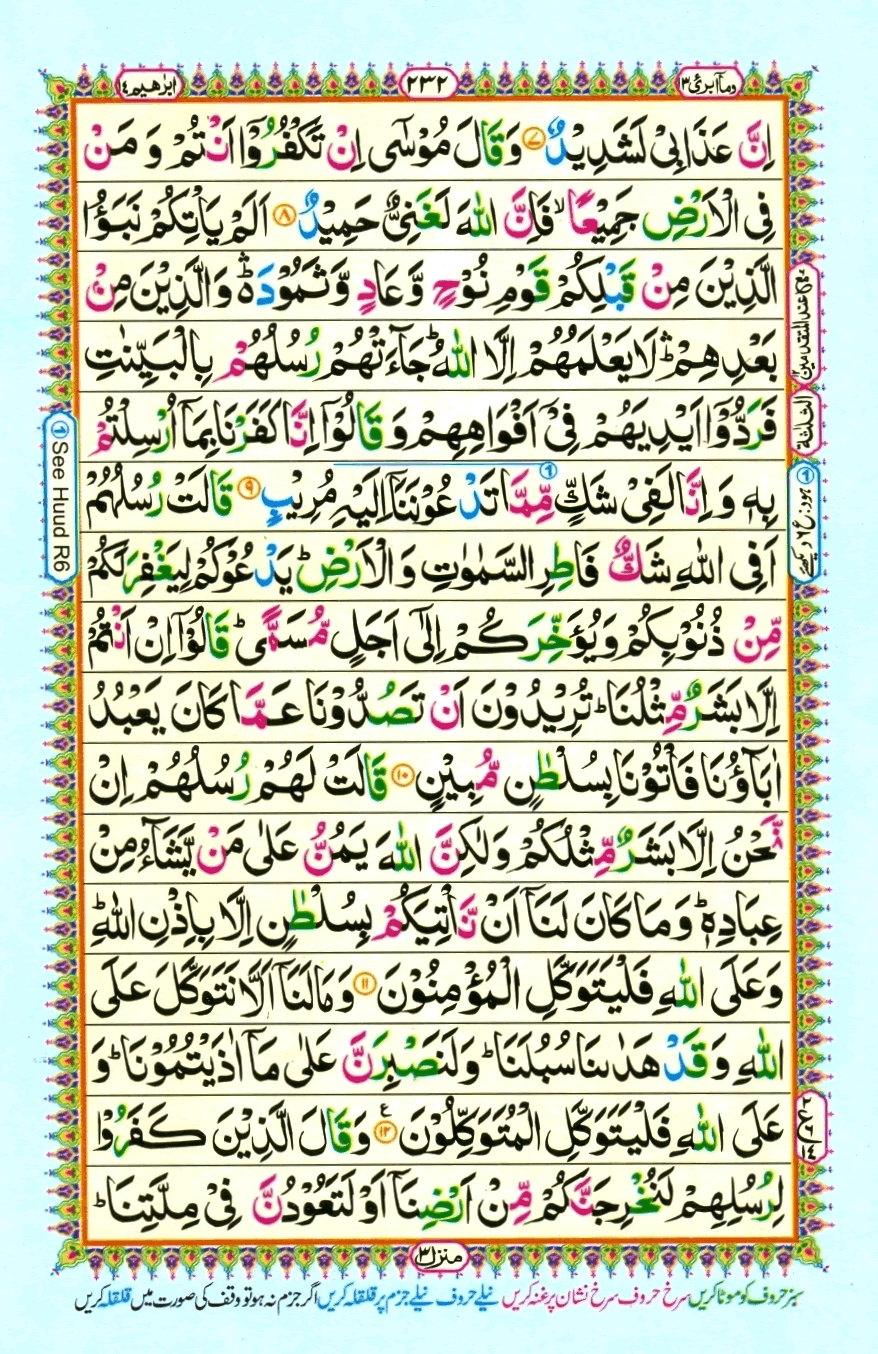 ابرٰهیم ۱۴ ۲۳۲ وما ابرئ ۱۳
اِنَّ عَذَابِیْ لَشَدِیْدٌ ۷ وَقَالَ مُوْسٰۤی اِنْ تَكْفُرُوْۤا اَنْتُمْ وَ مَنْ
فِی الْاَرْضِ جَمِیْعًا ۙ فَاِنَّ اللّٰهَ لَغَنِیٌّ حَمِیْدٌ ۸ اَلَمْ یَاْتِكُمْ نَبَؤُا
الَّذِیْنَ مِنْ قَبْلِكُمْ قَوْمِ نُوْحٍ وَّعَادٍ وَّثَمُوْدَ ۛ۬ وَالَّذِیْنَ مِنْۢ
بَعْدِهِمْ ۛؕ لَا یَعْلَمُهُمْ اِلَّا اللّٰهُ ؕ جَآءَتْهُمْ رُسُلُهُمْ بِالْبَیِّنٰتِ
فَرَدُّوْۤا اَیْدِیَهُمْ فِیْۤ اَفْوَاهِهِمْ وَ قَالُوْۤا اِنَّا كَفَرْنَا بِمَاۤ اُرْسِلْتُمْ
بِهٖ وَ اِنَّا لَفِیْ شَكٍّ مِّمَّا تَدْعُوْنَنَاۤ اِلَیْهِ مُرِیْبٍ ۹ قَالَتْ رُسُلُهُمْ
اَفِی اللّٰهِ شَكٌّ فَاطِرِ السَّمٰوٰتِ وَ الْاَرْضِ ؕ یَدْعُوْكُمْ لِیَغْفِرَ لَكُمْ
مِّنْ ذُنُوْبِكُمْ وَ یُؤَخِّرَكُمْ اِلٰۤی اَجَلٍ مُّسَمًّی ؕ قَالُوْۤا اِنْ اَنْتُمْ
اِلَّا بَشَرٌ مِّثْلُنَا ؕ تُرِیْدُوْنَ اَنْ تَصُدُّوْنَا عَمَّا كَانَ یَعْبُدُ
اٰبَآؤُنَا فَاْتُوْنَا بِسُلْطٰنٍ مُّبِیْنٍ ۱۰ قَالَتْ لَهُمْ رُسُلُهُمْ اِنْ
نَّحْنُ اِلَّا بَشَرٌ مِّثْلُكُمْ وَلٰكِنَّ اللّٰهَ یَمُنُّ عَلٰی مَنْ یَّشَآءُ مِنْ
عِبَادِهٖ ؕ وَ مَا كَانَ لَنَاۤ اَنْ نَّاْتِیَكُمْ بِسُلْطٰنٍ اِلَّا بِاِذْنِ اللّٰهِ ؕ
وَعَلَی اللّٰهِ فَلْیَتَوَكَّلِ الْمُؤْمِنُوْنَ ۱۱ وَ مَا لَنَاۤ اَلَّا نَتَوَكَّلَ عَلَی
اللّٰهِ وَ قَدْ هَدٰىنَا سُبُلَنَا ؕ وَلَنَصْبِرَنَّ عَلٰی مَاۤ اٰذَیْتُمُوْنَا ؕ وَ
عَلَی اللّٰهِ فَلْیَتَوَكَّلِ الْمُتَوَكِّلُوْنَ ۱۲ ع وَقَالَ الَّذِیْنَ كَفَرُوْا
لِرُسُلِهِمْ لَنُخْرِجَنَّكُمْ مِّنْ اَرْضِنَاۤ اَوْ لَتَعُوْدُنَّ فِیْ مِلَّتِنَا ؕ
منزل ۳
سبز حروف کو موٹا کریں سرخ حروف سرخ نشان پر غنہ کریں نیلے حروف نیلے جزم پر قلقلہ کریں اگر جزم نہ ہو تو وقف کی صورت میں قلقلہ کریں
مع عند المتقدمین ۱۲
الثلثة
۱ See Huud R6